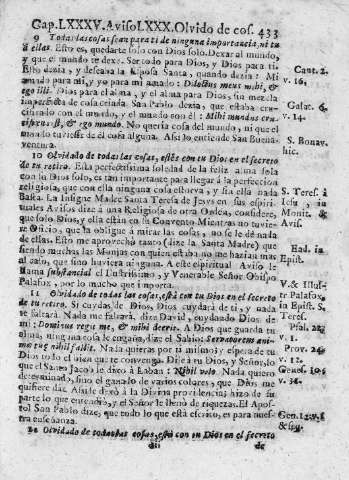 Cap. LXXXV. Aviso LXXX. Olvido de cos. 433
9 Todas las cosas sean para ti de ninguna importancia, ni tu
à ellas. Esto es, quedarte solo con Dios solo. Dexar al mundo,
y que el mundo te dexe. Ser todo para Dios, y Dios para ti
Cant. 2.
v. 16.
amado para mi, y yo para mi amado: Dilectus meus mihi, &
ego illi. Dios para el alma, y el alma para Dios, sin mezcla
imperfecta de cosa criada. San Pablo dezia, que estaba cru-
Galat. 6.
cificado con el mundo, y el mundo con èl: Mihi mundus cru-
v. 14.
cifixus est, & ego mundo. No queria cosa del mundo, ni que el
mundo tuviesse de èl cosa alguna. Assi lo entiende San Buena-
S. Bonav.
ventura.
hic.
10 Olvidado de todas las cosas, estès con tu Dios en el secreto
de tu retiro. Esta perfectissima soledad de la feliz alma sola
con solo Dios, es tan importante para llegar à la perfeccion
religiosa, que con ella ninguna cosa estorva, y sin ella nada
S. Teres. è
basta. La insigne Madre Santa Teresa de Jesus en sus espiri-
Iesu, in
tuales Avisos dize à una Religiosa de otra Orden, considere,
Monit. &
que solo Dios, y ella están en su Convento Mientras no tuvie-
Avis.
re Oficio, que la obligue à mirar las cosas, no se le dè nada
de ellas. Esto me aprovechò tanto (dize la Santa Madre) que
siendo muchas las Monjas con quien estaba no me hazian mas
in
Epist.
al caso, que sino huviera ninguna. A este espiritual Aviso le
llama substancial el Ilustrissimo, y Venerable Señor Obispo
V. & Illus-
Palafox, por lo mucho que importa.
tr. Palafox,
11 Olvidado de todas las cosas, està con tu Dios en el secreto
in Epist. S.
de tu retiro. Si cuydas de Dios, Dios cuydarà de ti, y nada
Teres.
te faltarà. Nada me faltarà, dize David, cuydando Dios de
mi: Dominus regit me, & mihi deerit. A Dios que guarda tu
v. 1.
alma, ninguna cosa le engaña, dize el Sabio: Servatorem ani-
Prov. 24.
mæ tuæ nihil fallit. Nada quieras por ti mismo, y espera de tu
v. 12.
Dios todo el bien que te convenga. Dile à tu Dios, y Señor, lo
que el Santo Jacob le dixo à Laban: Nihil volo. Nada quiero
determinado, sino el ganado de varios colores, que Dios me
v. 31.
quisiere dàr. Assi le dexò à la Divina providencia, hizo de su
parte lo que entendiò, y el Señor le llenò de riquezas. El Apos-
tol San Pablo dize, que todo lo que està escrito, es para nues-
tra enseñanza.
12 Olvidado de todas las cosas, està con tu Dios en el secreto
de